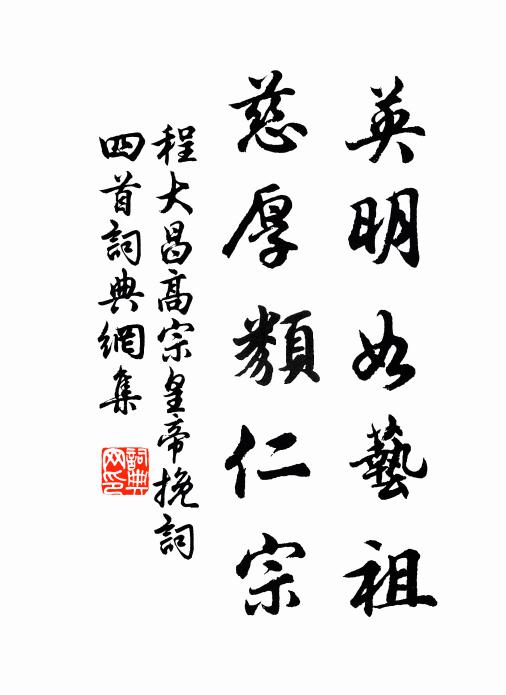 英明如藝祖
慈厚類仁宗
程大昌高宗皇帝挽詞
四首詞典網集
詞典網印